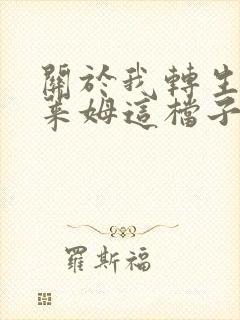 關於我轉生
萊姆這檔子
羅斯福